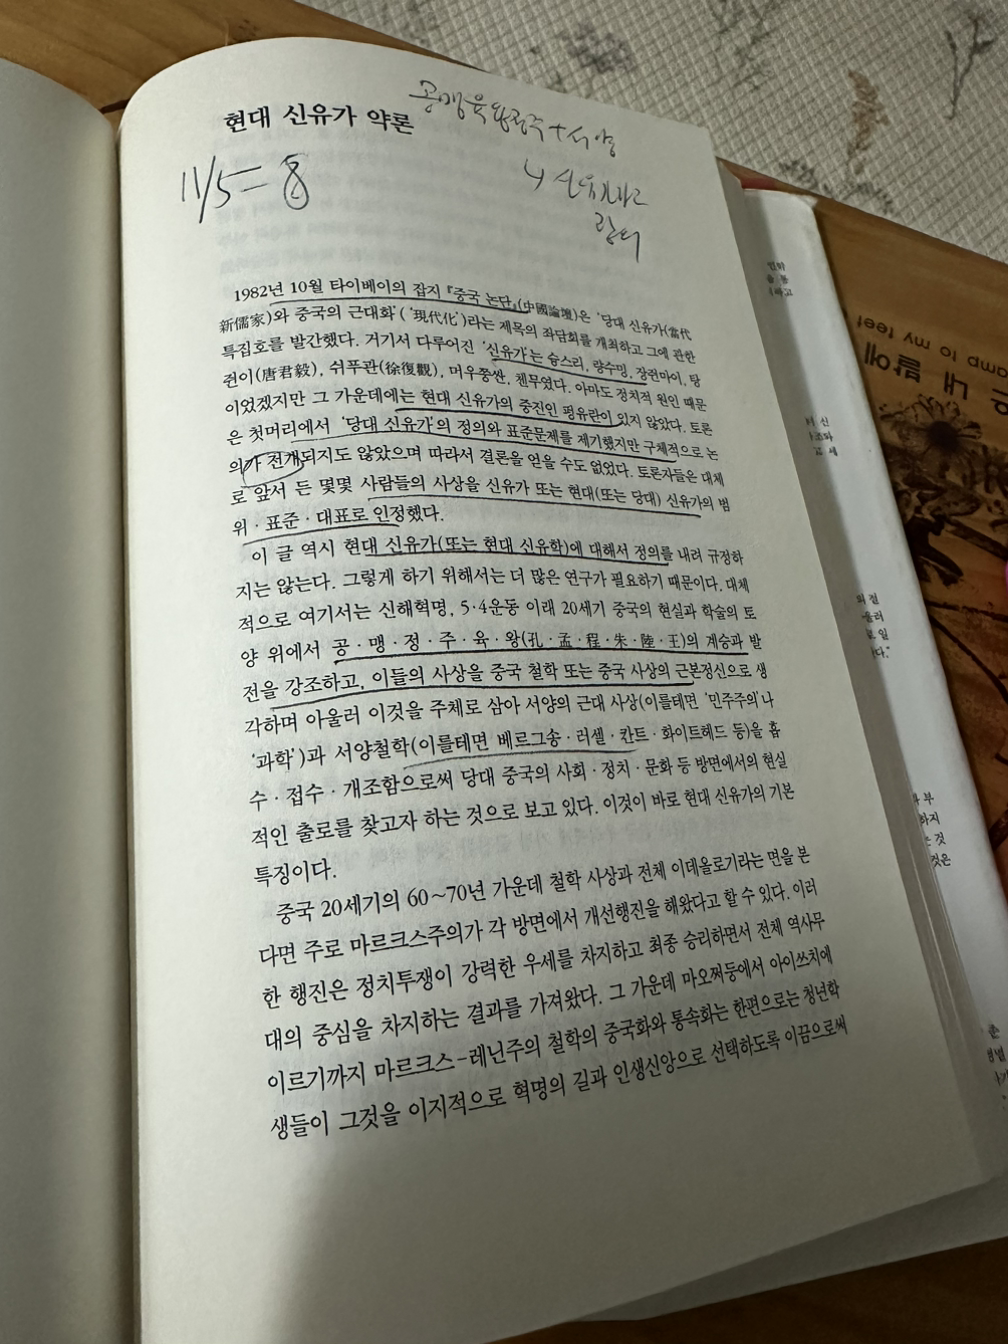 현대 신유가 약론
11/5=
1982년 10월 타이베이의 잡지 『중국 논단』(中國論壇)은 '당대 신유가(當代
新儒家)와 중국의 근대화'('現代化')라는 제목의 좌담회를 개최하고 그에 관한
특집호를 발간했다. 거기서 다루어진 '신유가'는 슝스리, 량수밍, 장쥔마이, 탕
쥔이(唐君毅), 쉬푸관(徐復觀), 머우쫑싼, 첸무였다. 아마도 정치적 원인 때문
이었겠지만 그 가운데에는 현대 신유가의 중진인 펑유란이 있지 않았다. 토론
은 첫머리에서 '당대 신유가'의 정의와 표준문제를 제기했지만 구체적으로 논
의가 전개되지도 않았으며 따라서 결론을 얻을 수도 없었다. 토론자들은 대체
로 앞서 든 몇몇 사람들의 사상을 신유가 또는 현대(또는 당대) 신유가의 범
위·표준·대표로 인정했다.
이 글 역시 현대 신유가(또는 현대 신유학)에 대해서 정의를 내려 규정하
지는 않는다. 그렇게 하기 위해서는 더 많은 연구가 필요하기 때문이다. 대체
적으로 여기서는 신해혁명, 5·4운동 이래 20세기 중국의 현실과 학술의 토
양 위에서 공·맹·정·주·육·왕(孔·孟·程·朱·陸·王)의 계승과 발
전을 강조하고, 이들의 사상을 중국 철학 또는 중국 사상의 근본정신으로 생
각하며 아울러 이것을 주체로 삼아 서양의 근대 사상(이를테면 '민주주의'나
'과학')과 서양철학(이를테면 베르그송·러셀·칸트·화이트헤드 등)을 흡
수·접수·개조함으로써 당대 중국의 사회·정치·문화 등 방면에서의 현실
적인 출로를 찾고자 하는 것으로 보고 있다. 이것이 바로 현대 신유가의 기본
특징이다.
중국 20세기의 60~70년 가운데 철학 사상과 전체 이데올로기라는 면을 본
다면 주로 마르크스주의가 각 방면에서 개선행진을 해왔다고 할 수 있다. 이러
한 행진은 정치투쟁이 강력한 우세를 차지하고 최종 승리하면서 전체 역사무
대의 중심을 차지하는 결과를 가져왔다. 그 가운데 마오쩌둥에서 아이쓰치에
이르기까지 마르크스-레닌주의 철학의 중국화와 통속화는 한편으로는 청년학
생들이 그것을 이지적으로 혁명의 길과 인생신앙으로 선택하도록 이끔으로써
to my feet
내 발에